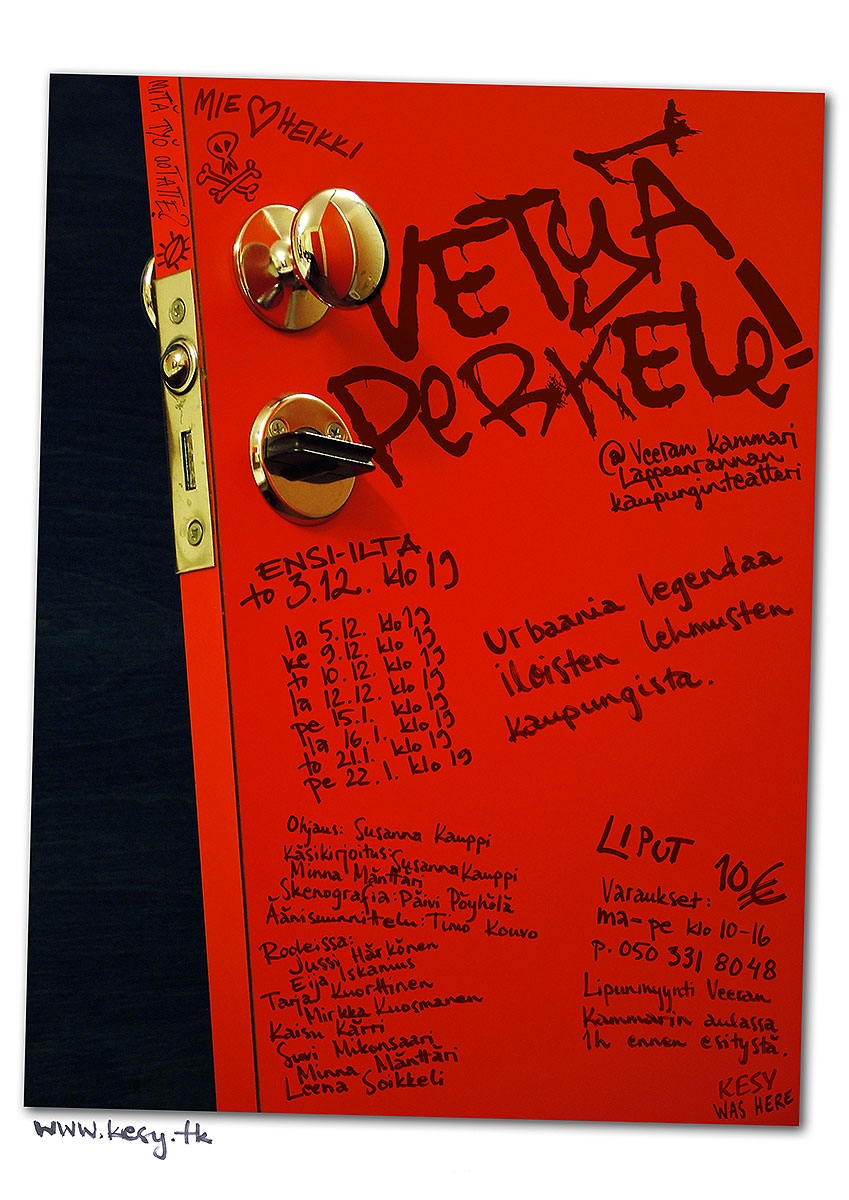 MITÄ TYÖ OOTATTE?
MIE ♡ HEIKKI
VETYÄ
PERKELE!
@ Veeran Kammari
Lappeenrannan
kaupunginteatteri
ENSI-ILTA
to 3.12. klo 19
la 5.12. klo 19
ke 9.12. klo 19
to 10.12. klo 19
la 12.12. klo 19
pe 15.1. klo 19
la 16.1. klo 19
to 21.1. klo 19
pe 22.1. klo 19
Urbaania legendaa
iloisten lehmusten
kaupungista.
Ohjaus: Susanna Kauppi
Käsikirjoitus: Susanna Kauppi
Minna Mänttäri
Skenografia: Päivi Pöyhölä
Äänisuunnittelu: Timo Kouvo
Rooleissa:
Jussi Härkönen
Eija Iskanius
Tarja Kuorttinen
Mirkka Kuosmanen
Kaisu Kärri
Suvi Mikonsaari
Minna Mänttäri
Leena Soikkeli
LIPUT 10€
Varaukset:
ma-pe klo 10-16
p. 050 331 8048
Lipunmyynti Veeran
Kammarin aulassa
1h ennen esitystä.
KESY
WAS HERE
www.kesy.tk